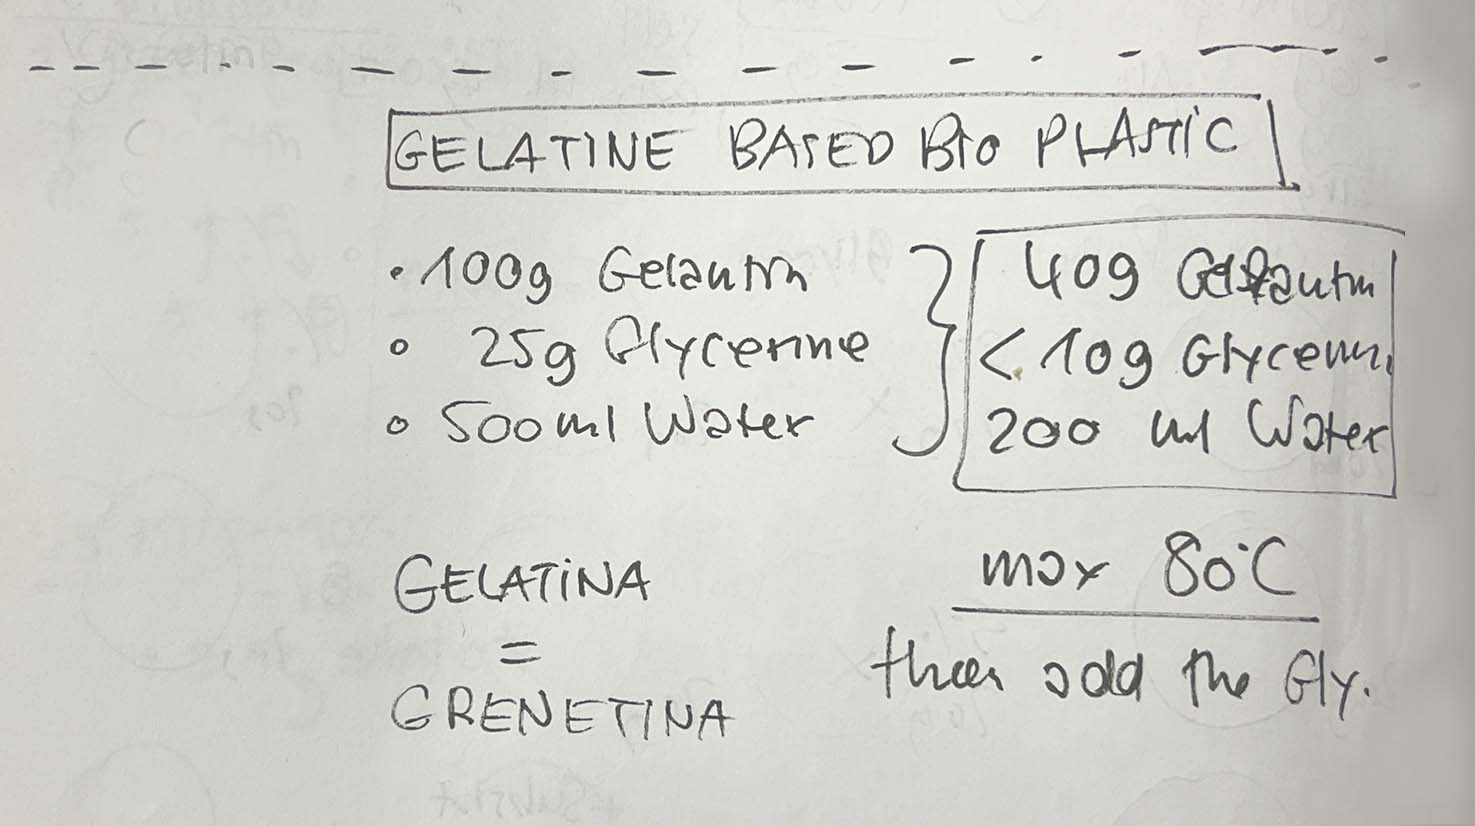 GELATINE BASED BIO PLASTIC
• 100g Gelautin
∘ 25g Glycerine
∘ 500ml Water
40g Gelautin
< 10g Glycerin
200 ml Water
max 80°C
then add the Gly.
GELATINA
=
GRENETINA